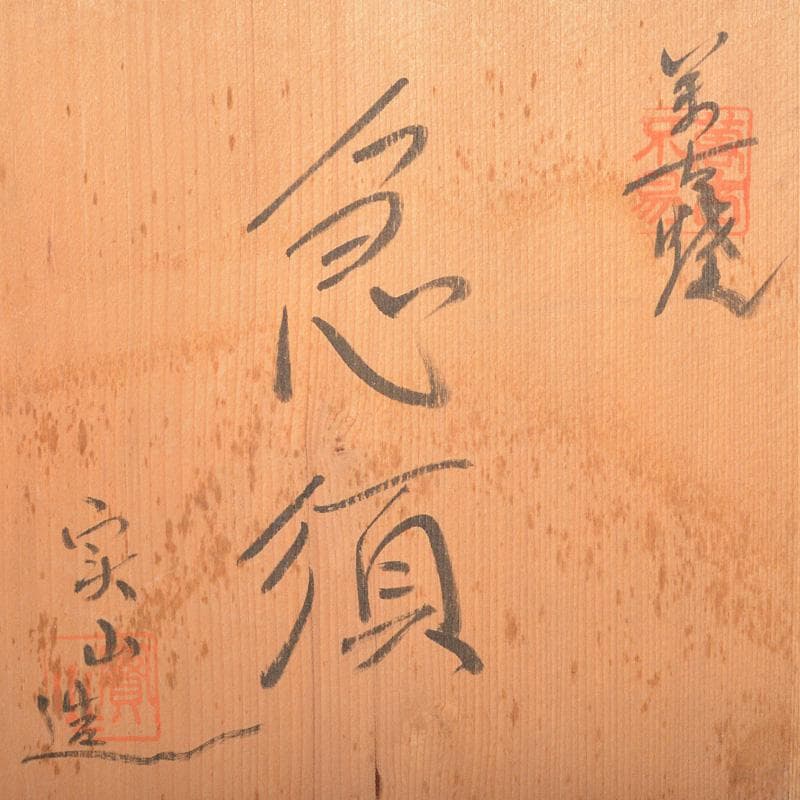 萬古焼
急須
実山造